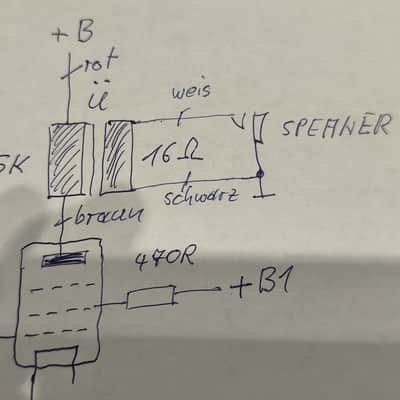 +B
rot
Ü
weis
SPEAKER
5K
16Ω
schwarz
braun
470R
+B1